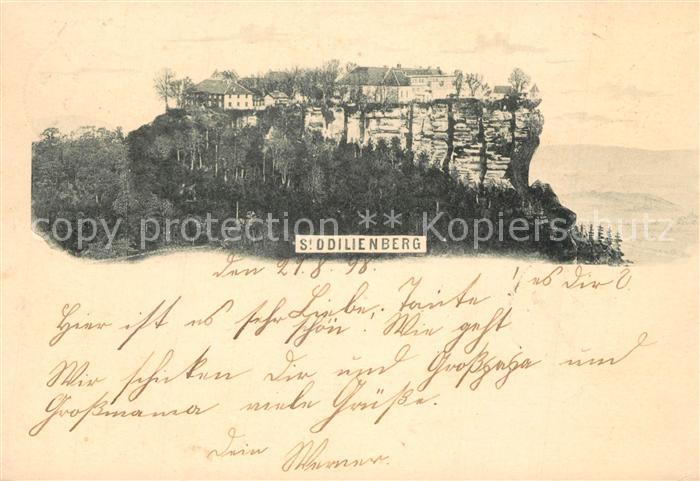 copy protection ** Kopierschutz
ST ODILIENBERG
den 21.8.98.
Liebe Tante!
Hier ist es sehr schön. Wie geht es Dir?
Wir schicken Dir und Großpapa und
Großmama viele Grüße.
Dein
Werner.